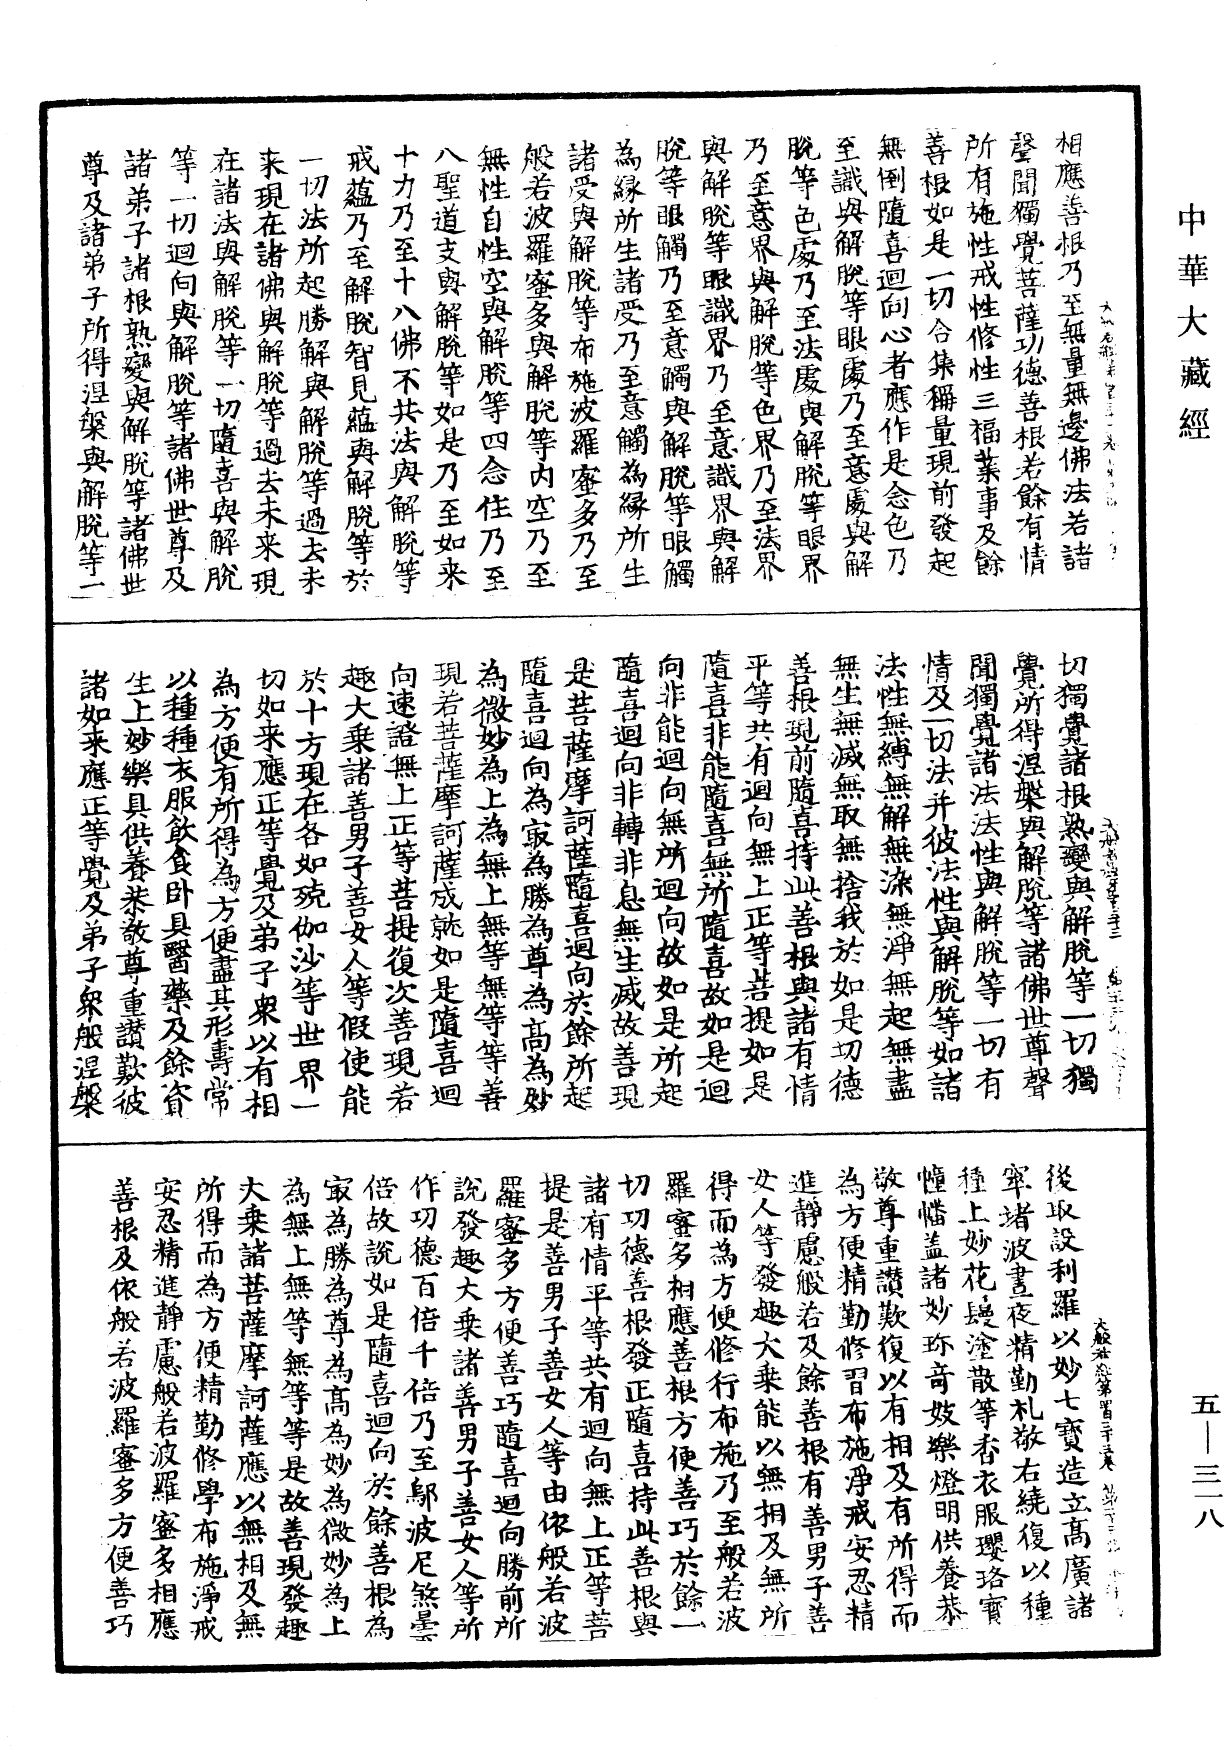 中華大藏經
相應善根乃至無量無邊佛法若諸
聲聞獨覺菩薩功德善根若餘有情
所有施性戒性修性三福業事及餘
善根如是一切合集稱量現前發起
無倒隨喜迴向心者應作是念色乃
至識與解脫等眼處乃至意處與解
脫等色處乃至法處與解脫等眼界
乃至意界與解脫等色界乃至法界
與解脫等眼識界乃至意識界與解
脫等眼觸乃至意觸與解脫等眼觸
為緣所生諸受乃至意觸為緣所生
諸受與解脫等布施波羅蜜多乃至
般若波羅蜜多與解脫等內空乃至
無性自性空與解脫等四念住乃至
八聖道支與解脫等如是乃至如來
十力乃至十八佛不共法與解脫等
戒蘊乃至解脫智見蘊與解脫等於
一切法所起勝解與解脫等過去未
来現在諸佛與解脫等過去未来現
在諸法與解脫等一切隨喜與解脫
等一切迴向與解脫等諸佛世尊及
諸弟子諸根熟變與解脫等諸佛世
尊及諸弟子所得涅槃與解脫等一
切獨覺諸根熟變與解脫等一切獨
覺所得涅槃與解脫等諸佛世尊聲
聞獨覺諸法法性與解脫等一切有
情及一切法并彼法性與解脫等如諸
法性無縛無解無染無淨無起無盡
無生無滅無取無捨我於如是切德
善根現前隨喜持此善根與諸有情
平等共有迴向無上正等菩提如是
隨喜非能隨喜無所隨喜故如是迴
向非能迴向無所迴向故如是所起
隨喜迴向非轉非息無生滅故善現
是菩薩摩訶薩隨喜迴向於餘所起
隨喜迴向為㝡為勝為尊為高為妙
為微妙為上為無上無等無等等善
現若菩薩摩訶薩成就如是隨喜迴
向速證無上正等菩提復次善現若
趣大乘諸善男子善女人等假使能
於十方現在各如殑伽沙等世界一
切如来應正等覺及弟子衆以有相
為方便有所得為方便盡其形壽常
以種種衣服飲食卧具醫藥及餘資
生上妙樂具供養恭敬尊重讚歎彼
諸如来應正等覺及弟子衆般涅槃
後取設利羅以妙七寶造立高廣諸
窣堵波晝夜精勤礼敬右繞復以種
種上妙花鬘塗散等香衣服瓔珞寶
幢幡蓋諸妙珎奇妓樂燈明供養恭
敬尊重讚歎復以有相及有所得而
為方便精勤修習布施淨戒安忍精
進靜慮般若及餘善根有善男子善
女人等發趣大乘能以無相及無所
得而為方便修行布施乃至般若波
羅蜜多相應善根方便善巧於餘一
切功德善根發正隨喜持此善根與
諸有情平等共有迴向無上正等菩
提是善男子善女人等由依般若波
羅蜜多方便善巧隨喜迴向勝前所
說發趣大乘諸善男子善女人等所
作功德百倍千倍乃至鄔波尼煞曇
倍故說如是隨喜迴向於餘善根為
㝡為勝為尊為高為妙為微妙為上
為無上無等無等等是故善現發趣
大乘諸菩薩摩訶薩應以無相及無
所得而為方便精勤修學布施淨戒
安忍精進靜慮般若波羅蜜多相應
善根及依般若波羅蜜多方便善巧
五—三一八